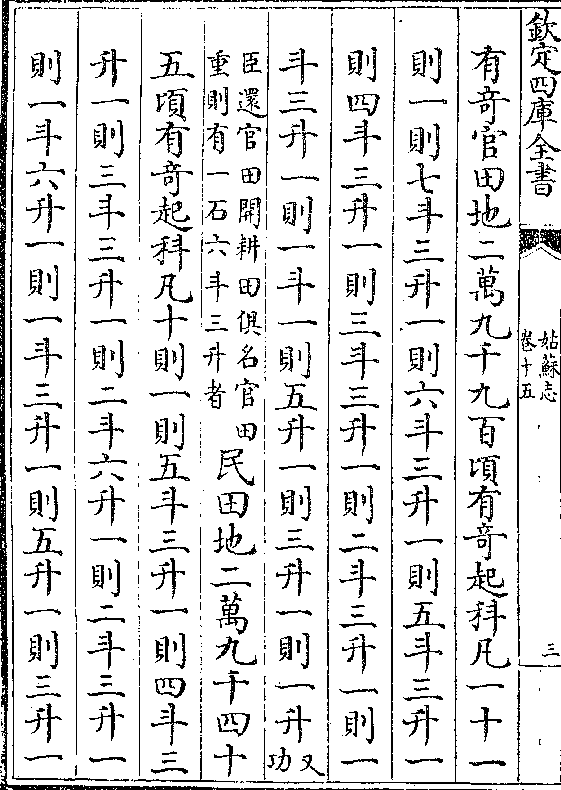 欽定四庫全書
姑蘇志
卷十五
三
有奇官田地二萬九千九百頃有奇起科凡一十一
則一則七斗三升一則六斗三升一則五斗三升一
則四斗三升一則三斗三升一則二斗三升一則一
斗三升一則一斗一則五升一則三升一則一升又功
臣還官田開耕田俱名官田
重則有一石六斗三升者
民田地二萬九千四十
五頃有奇起科凡十則一則五斗三升一則四斗三
升一則三斗三升一則二斗六升一則二斗三升一
則一斗六升一則一斗三升一則五升一則三升一